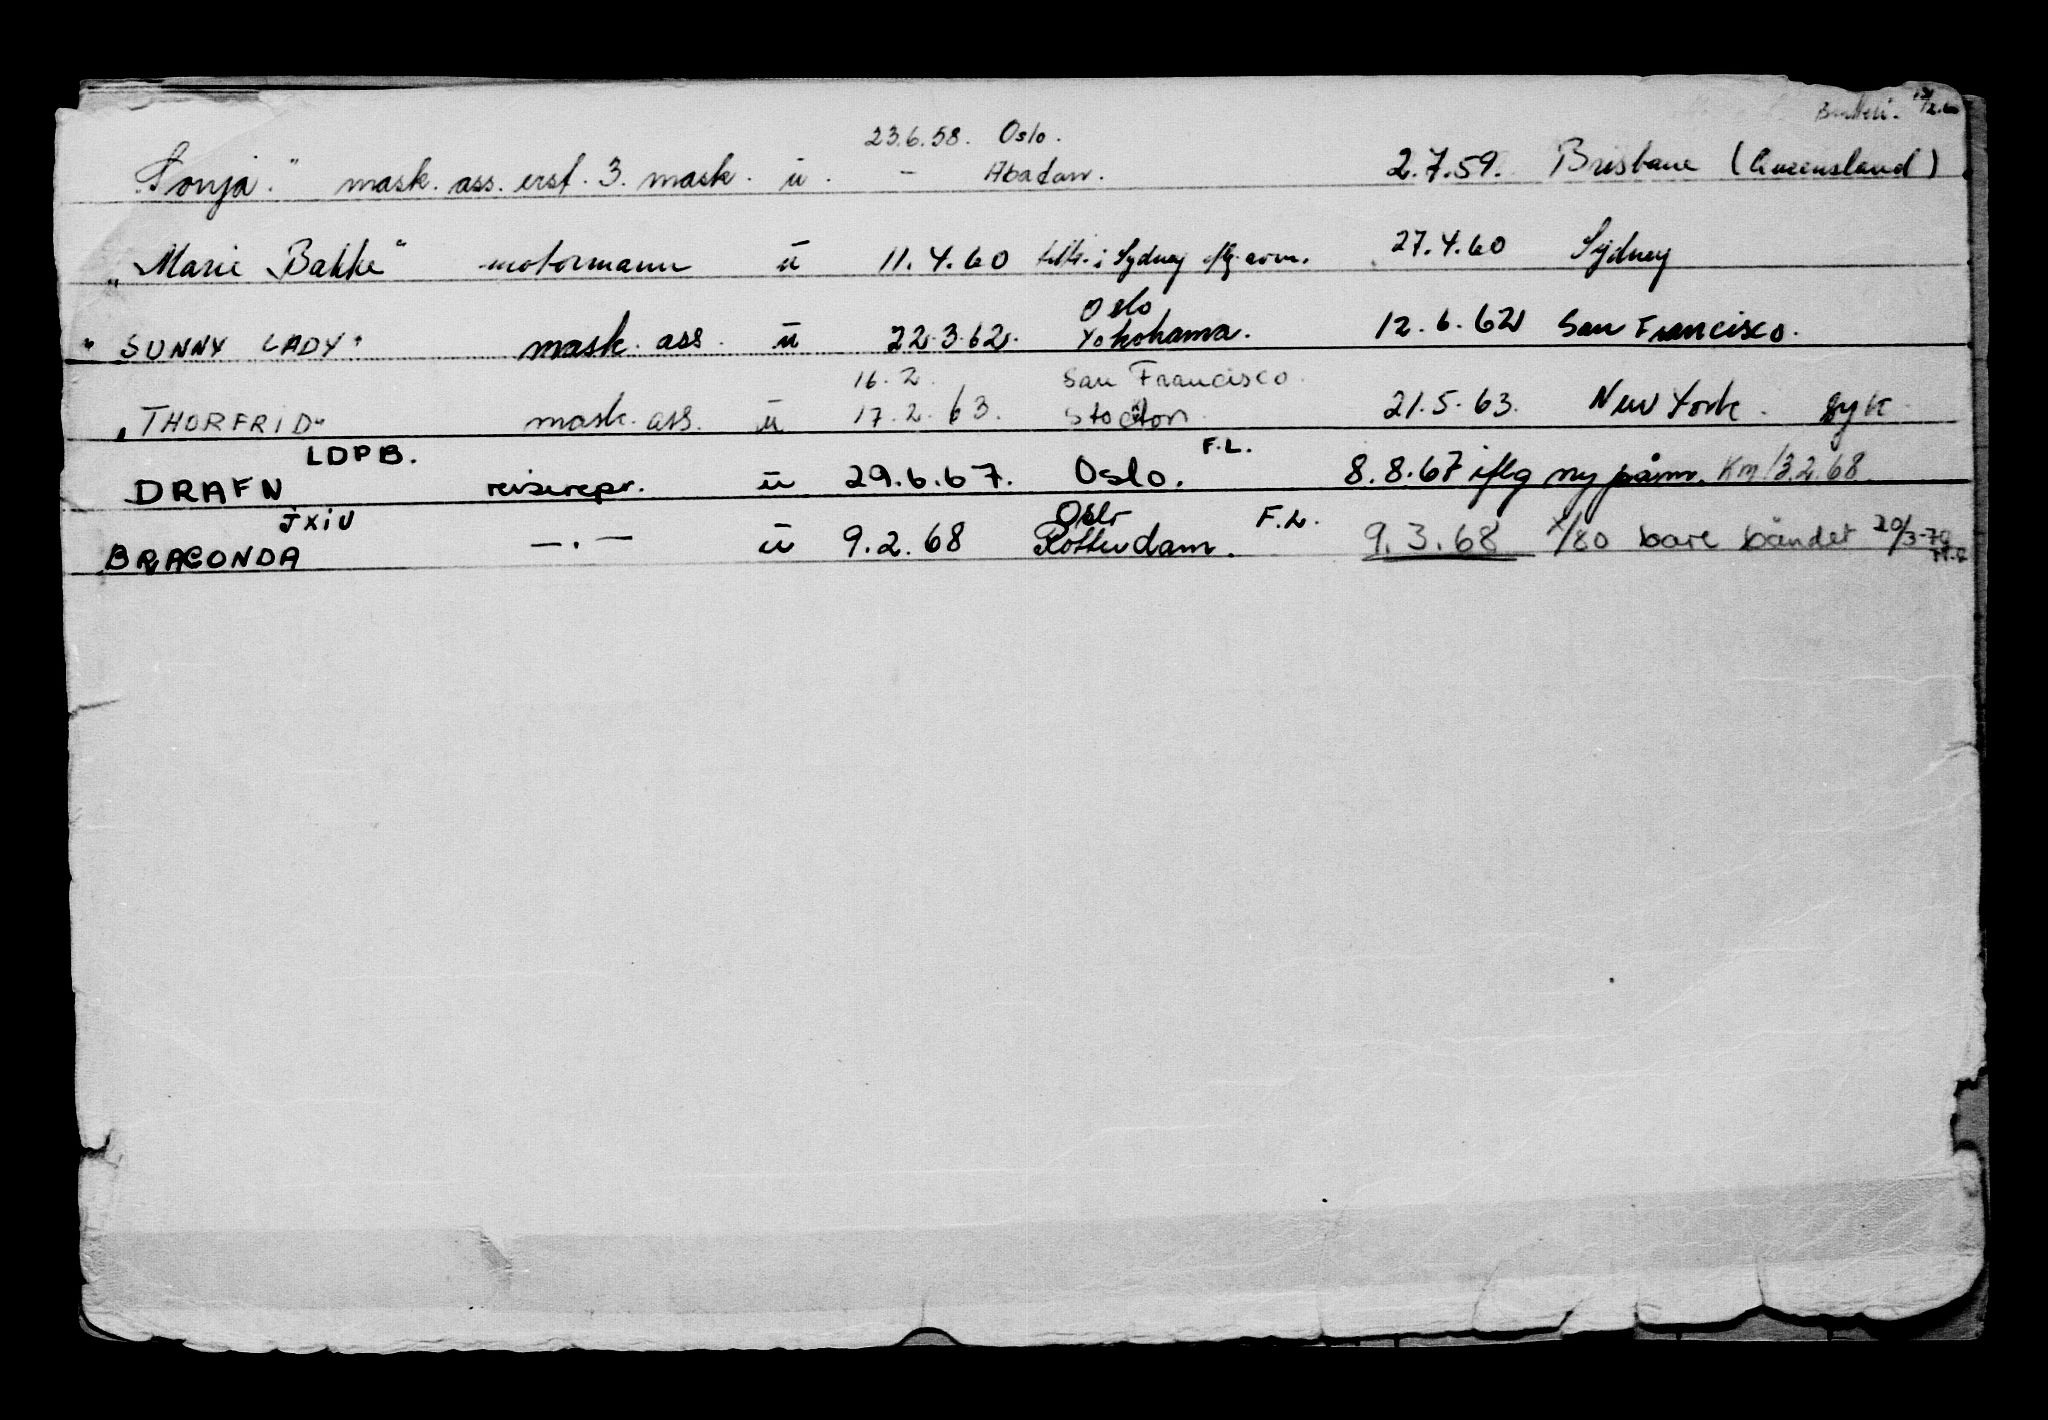 23.6.58. Oslo.
"Sonja." mask. ass. erst. 3. mask. u. - Abadan. 2.7.59. Brisbane (Queensland)
"Marie Bakke" motormann u 11.4.60 i Sydney iflg. 27.4.60 Sydney
Oslo
"SUNNY LADY" mask. ass. u 22.3.62. Yokohama. 12.6.62 San Francisco.
16.2. San Francisco.
"THORFRID" mask. ass. u 17.2.63. Stockton. 21.5.63. New York. syk
LDPB. F.L.
DRAFN reiserepr. u 29.6.67. Oslo. 8.8.67 iflg ny påm. Km/3.2.68
JXIU Oslo F.L.
BRAGONDA —.— u 9.2.68 Rotterdam. 9.3.68 1/80 bare båndet 20/3-79